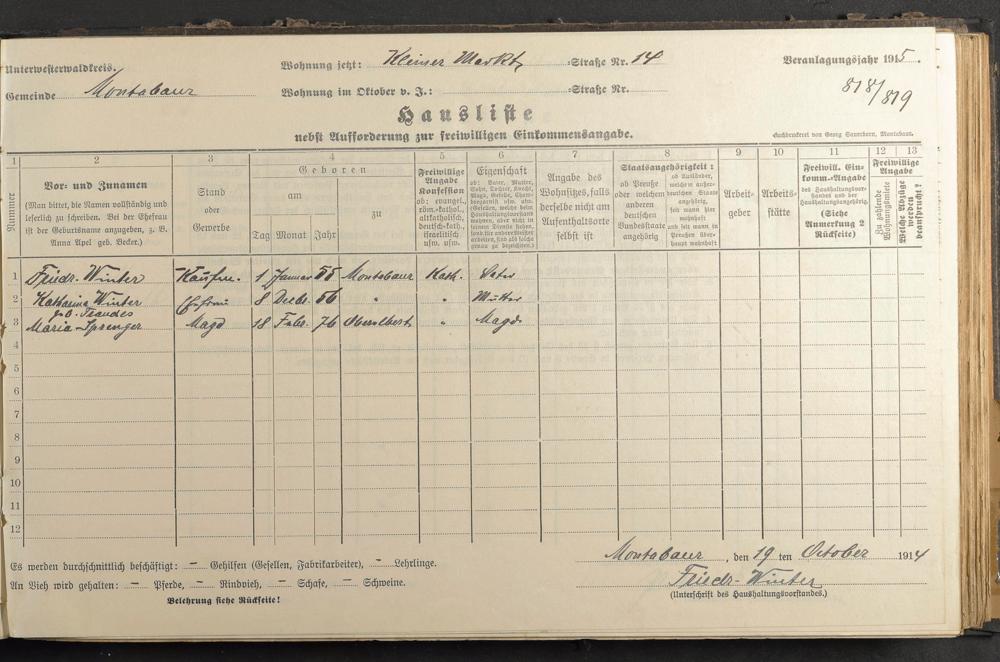 Unterwesterwaldkreis.
Wohnung jetzt: Kleiner Markt Straße Nr. 14
Veranlagungsjahr 1915.
Gemeinde Montabaur
Wohnung im Oktober v. J.: Straße Nr.
818/819
Hausliste
nebst Aufforderung zur freiwilligen Einkommensangabe.
Buchdruckerei von Georg Sauerborn, Montabaur.
1 2 3 4 5 6 7 8 9 10 11 12 13
Nummer
Vor- und Zunamen
(Man bittet, die Namen vollständig und
leserlich zu schreiben. Bei der Ehefrau
ist der Geburtsname anzugeben, z. B.
Anna Apel geb. Becker.)
Stand
oder
Gewerbe
Geboren
am
Tag Monat Jahr
zu
Freiwillige
Angabe
Konfession
ob: evangel.,
röm.-kathol.,
altkatholisch,
deutsch-kath.,
israelitisch
usw. usw.
Eigenschaft
ob: Vater, Mutter,
Sohn, Tochter, Knecht,
Magd, Gehilfe,
Angabe des
Wohnsitzes, falls
derselbe nicht am
Aufenthaltsorte
selbst ist
Staatsangehörigkeit:
ob Preuße
oder welchem
anderen
deutschen
Bundesstaate
angehörig
ob Ausländer,
welchem außer-
deutschen Staate
angehörig,
seit wann hier
wohnhaft
und seit wann in
Preußen über-
haupt wohnhaft
Arbeit-
geber
Arbeits-
stätte
Freiwill. Ein-
komm.-Angabe
des Haushaltungsvor-
standes und der
Haushaltungsangehörig.
(Siehe
Anmerkung 2
Rückseite)
Freiwillige
Angabe
Zu zahlende
Wohnungsmiete
Welche Abzüge
werden
beansprucht?
1 Friedr. Winter Kaufm. 1 Januar 55 Montabaur Kath. Vater
2 Katharina Winter Ehefrau 8 Decbr. 56 " " Mutter
geb.
3 Maria Sprenger Magd 18 Febr. 76 " Magd
4
5
6
7
8
9
10
11
12
Montabaur, den 19 ten October 1914
Es werden durchschnittlich beschäftigt: — Gehilfen (Gesellen, Fabrikarbeiter), — Lehrlinge.
An Vieh wird gehalten: — Pferde, — Rindvieh, — Schafe, — Schweine.
Friedr. Winter
(Unterschrift des Haushaltungsvorstandes.)
Belehrung siehe Rückseite!